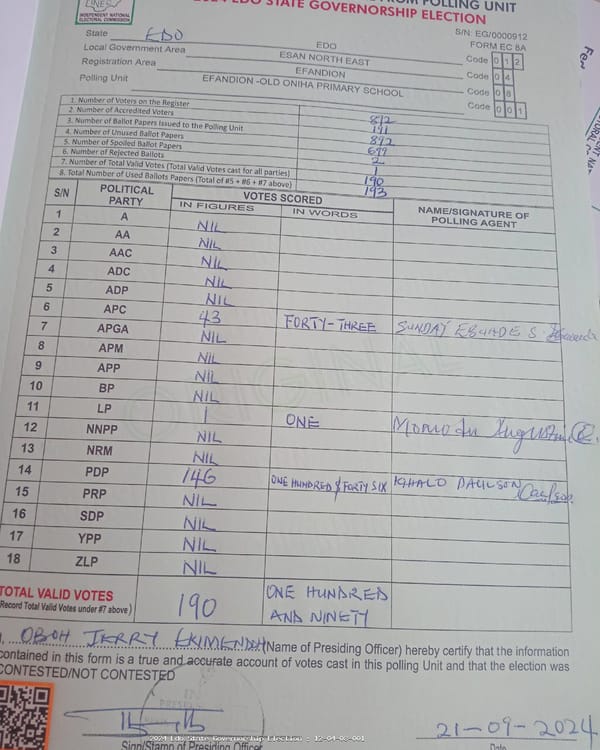 INDEPENDENT NATIONAL
ELECTORAL COMMISSION
FROM POLLING UNIT
2024 EDO STATE GOVERNORSHIP ELECTION
S/N: EG/0000912
FORM EC 8A
State EDO EDO Code 0 1 2
Local Government Area ESAN NORTH EAST Code 0 4
Registration Area EFANDION Code 0 8
Polling Unit EFANDION -OLD ONIHA PRIMARY SCHOOL Code 0 0 1
1. Number of Voters on the Register 892
2. Number of Accredited Voters 191
3. Number of Ballot Papers Issued to the Polling Unit 892
4. Number of Unused Ballot Papers 699
5. Number of Spoiled Ballot Papers 2
6. Number of Rejected Ballots 1
7. Number of Total Valid Votes (Total Valid Votes cast for all parties) 190
8. Total Number of Used Ballots Papers (Total of #5 + #6 + #7 above) 193
S/N POLITICAL PARTY VOTES SCORED NAME/SIGNATURE OF POLLING AGENT
IN FIGURES IN WORDS
1 A NIL
2 AA NIL
3 AAC NIL
4 ADC NIL
5 ADP NIL
6 APC 43 FORTY-THREE SUNDAY EBUADE S.
7 APGA NIL
8 APM NIL
9 APP NIL
10 BP NIL
11 LP 1 ONE MOMODU Augustine
12 NNPP NIL
13 NRM NIL
14 PDP 146 ONE HUNDRED & FORTY SIX KHALO PAULSON
15 PRP NIL
16 SDP NIL
17 YPP NIL
18 ZLP NIL
TOTAL VALID VOTES 190 ONE HUNDRED
(Record Total Valid Votes under #7 above) AND NINETY
I, OBOH JERRY EKIMENDOH (Name of Presiding Officer) hereby certify that the information
contained in this form is a true and accurate account of votes cast in this polling Unit and that the election was
CONTESTED/NOT CONTESTED
21-09-2024
2024 Edo State Governorship Election : 12-04-08-001
Sign/Stamp of Presiding Officer Date
ORIGINAL